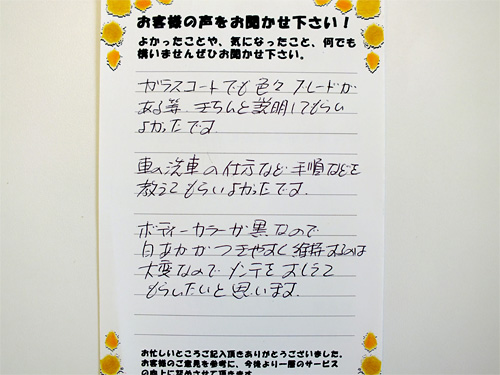 お客様の声をお聞かせ下さい！
よかったことや、気になったこと、何でも
構いませんぜひお聞かせ下さい。
ガラスコートでも色々グレードが
ある等、きちんと説明してもらい
よかったです
車の洗車の仕方など手順などを
教えてもらいよかったです.
ボディーカラーが黒なので
目あかがつきやすく維持するのは
大変なのでメンテをおしえて
もらいたいと思います.
お忙しいところご記入頂きありがとうございました。
お客様のご意見を参考に、今後より一層のサービス
の向上に努めさせて頂きます